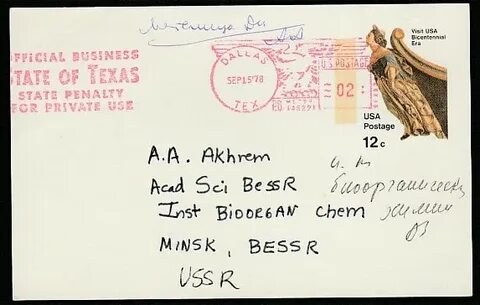 OFFICIAL BUSINESS
STATE OF TEXAS
STATE PENALTY
FOR PRIVATE USE
DALLAS
SEP15'78
TEX
U.S. POSTAGE
02
Visit USA
Bicentennial
Era
USA
Postage
12c
A.A. Akhrem
Acad Sci BesSR
Inst BIOORGAN Chem
MINSK, BESSR
USSR
химии